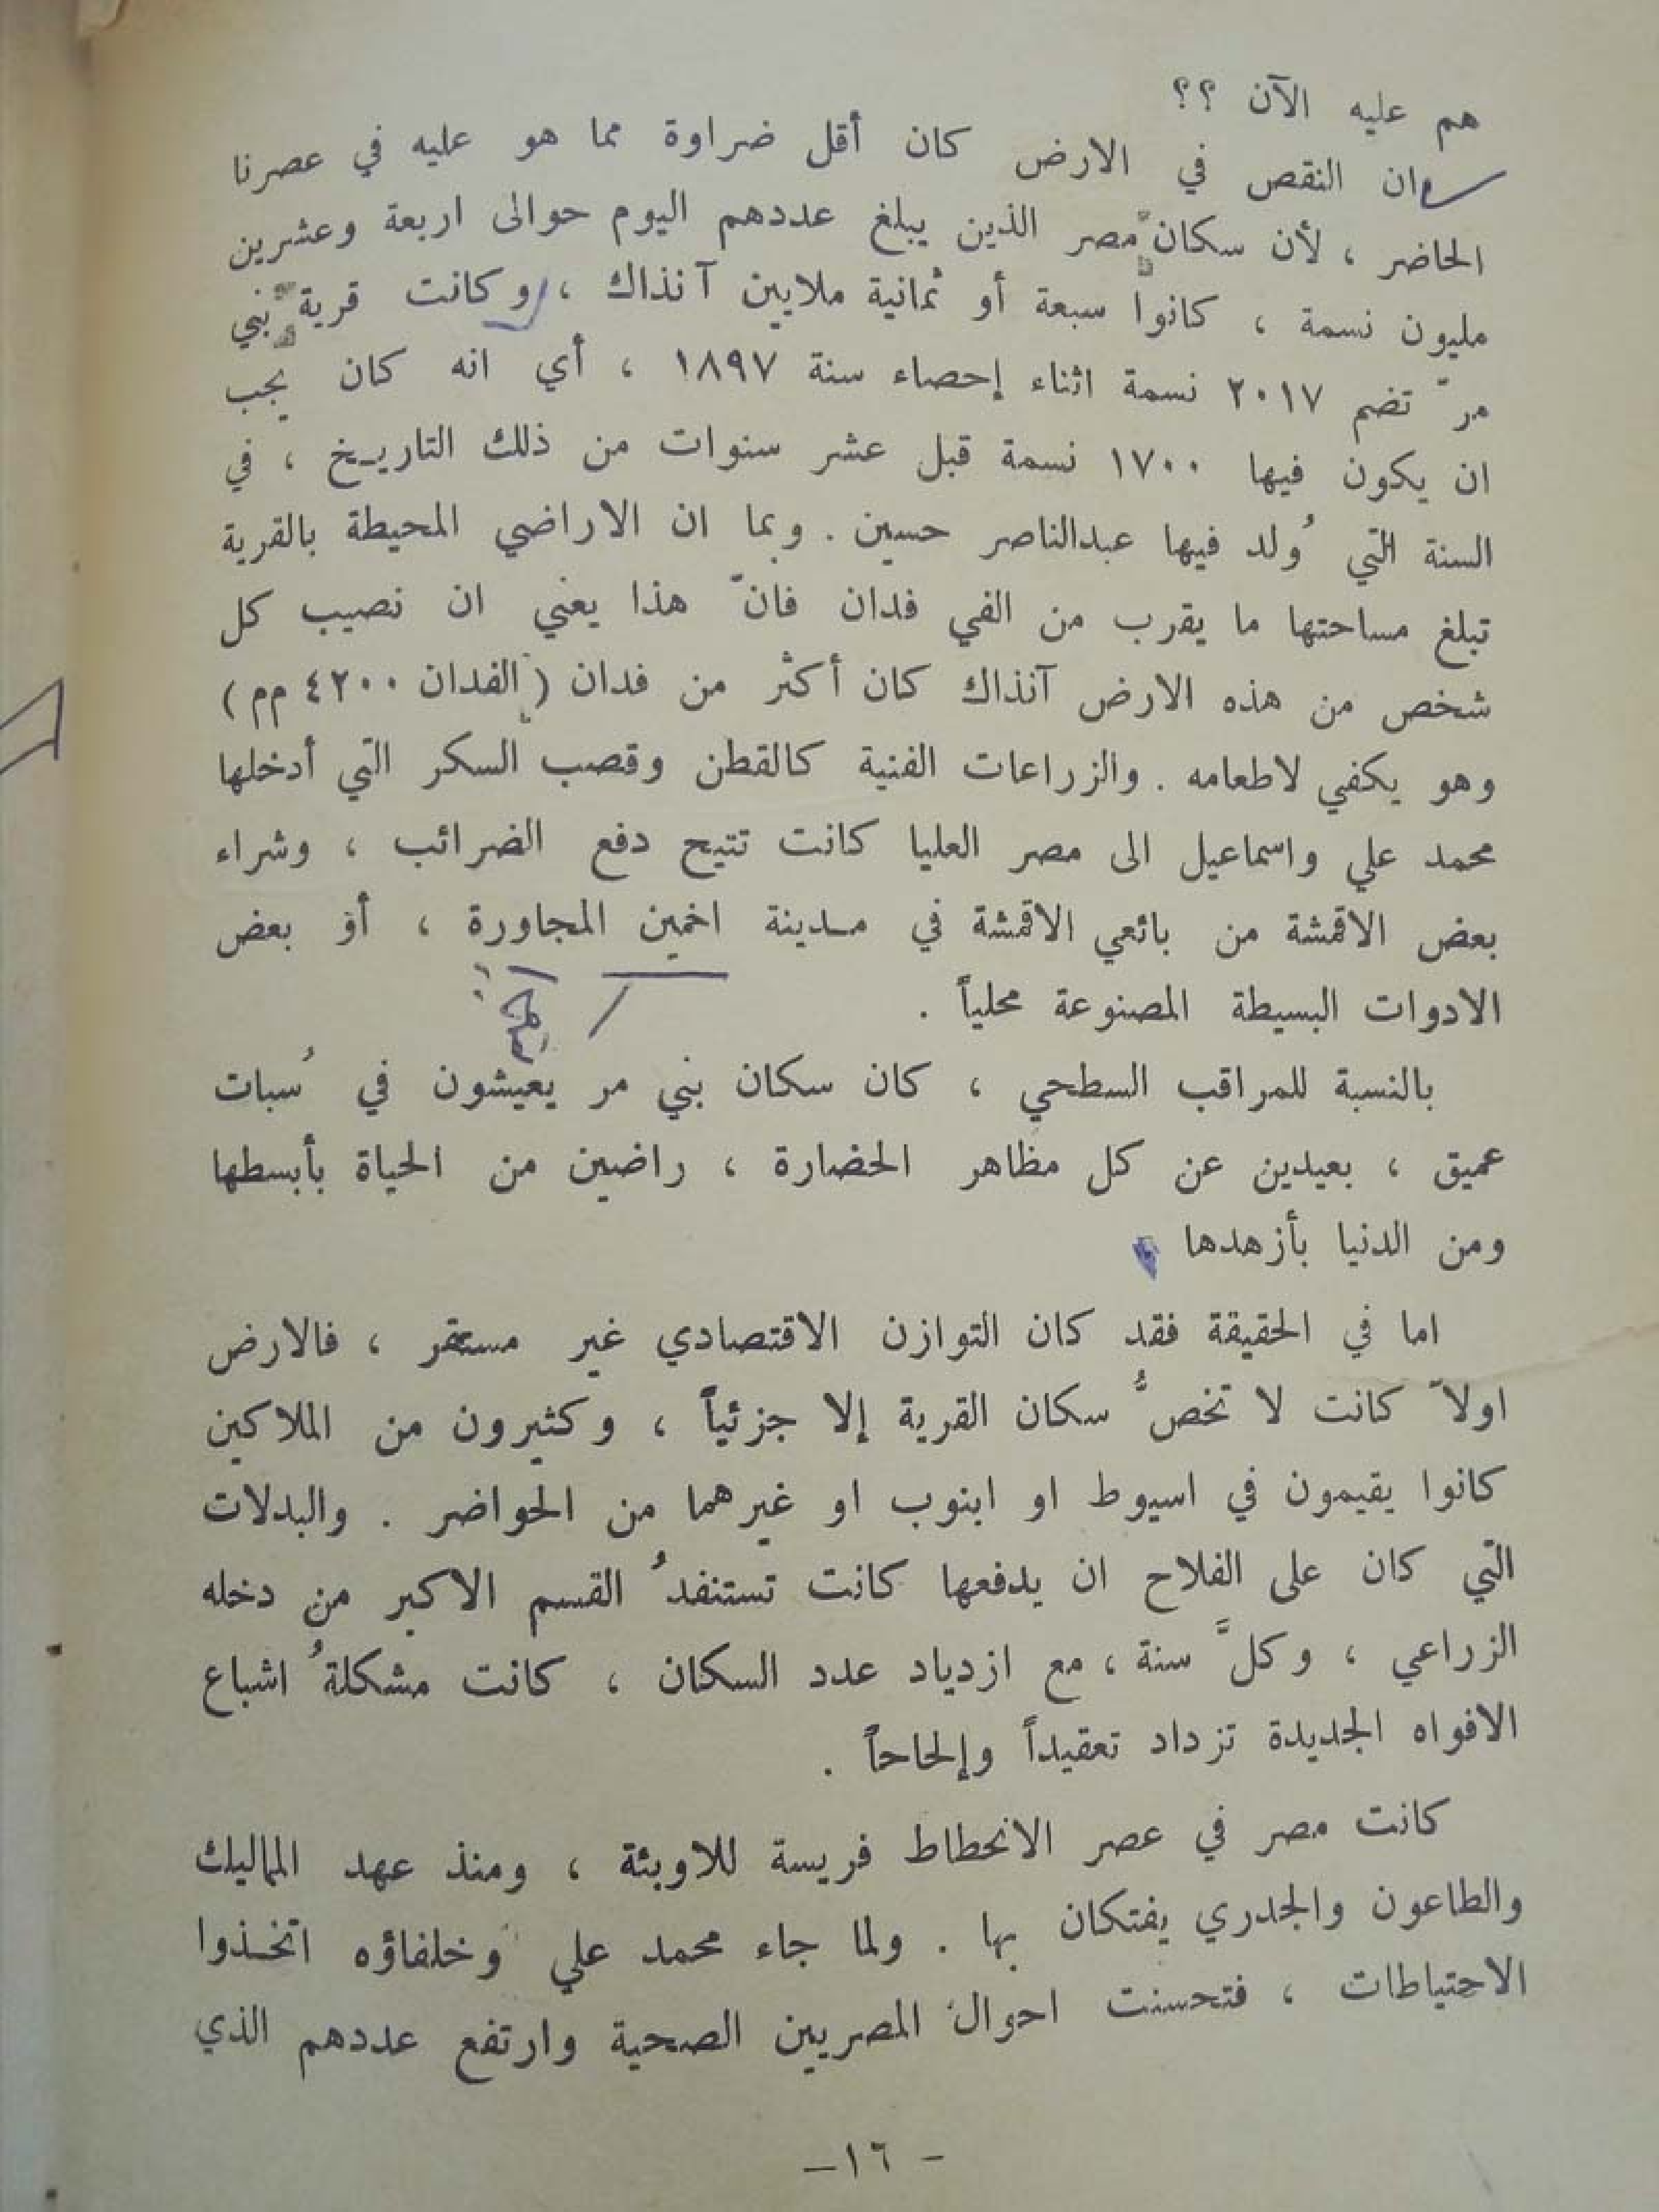 هم عليه الآن ؟؟
ان النقص في الارض كان أقل ضراوة مما هو عليه في عصرنا
الحاضر ، لأن سكان مصر الذين يبلغ عددهم اليوم حوالى اربعة وعشرين
مليون نسمة ، كانوا سبعة أو ثمانية ملايين آنذاك ، وكانت قرية بني
مرّ تضم ٢٠١٧ نسمة اثناء إحصاء سنة ١٨٩٧ ، أي انه كان يجب
ان يكون فيها ١٧٠٠ نسمة قبل عشر سنوات من ذلك التاريخ ، في
السنة التي وُلد فيها عبدالناصر حسين . وبما ان الاراضي المحيطة بالقرية
تبلغ مساحتها ما يقرب من الفي فدان فانّ هذا يعني ان نصيب كل
شخص من هذه الارض آنذاك كان أكثر من فدان ( الفدان ٤٢٠٠ م م )
وهو يكفي لاطعامه . والزراعات الفنية كالقطن وقصب السكر التي أدخلها
محمد علي واسماعيل الى مصر العليا كانت تتيح دفع الضرائب ، وشراء
بعض الاقمشة من بائعي الاقمشة في مدينة اخمين المجاورة ، أو بعض
الادوات البسيطة المصنوعة محلياً .
بالنسبة للمراقب السطحي ، كان سكان بني مر يعيشون في سُبات
عميق ، بعيدين عن كل مظاهر الحضارة ، راضين من الحياة بأبسطها
ومن الدنيا بأزهدها
اما في الحقيقة فقد كان التوازن الاقتصادي غير مستقر ، فالارض
اولاً كانت لا تخصُّ سكان القرية إلا جزئياً ، وكثيرون من الملاكين
كانوا يقيمون في اسيوط او ابنوب او غيرهما من الحواضر . والبدلات
التي كان على الفلاح ان يدفعها كانت تستنفدُ القسم الاكبر من دخله
الزراعي ، وكلَّ سنة ، مع ازدياد عدد السكان ، كانت مشكلةُ اشباع
الافواه الجديدة تزداد تعقيداً وإلحاحاً .
كانت مصر في عصر الانحطاط فريسة للاوبئة ، ومنذ عهد المماليك
والطاعون والجدري يفتكان بها . ولما جاء محمد علي وخلفاؤه اتخذوا
الاحتياطات ، فتحسنت احوال المصريين الصحية وارتفع عددهم الذي
– ١٦ –